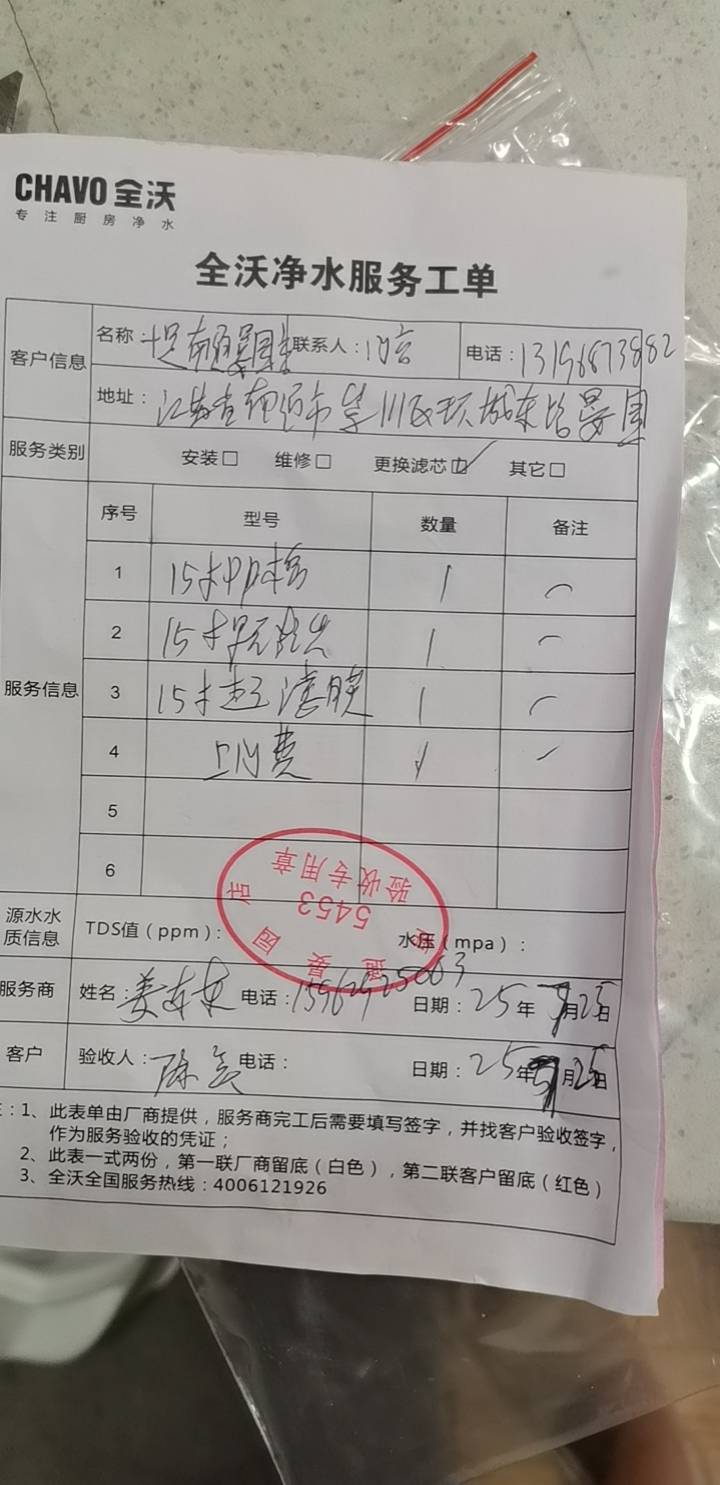 CHAVO 全沃
专注厨房净水
全沃净水服务工单
客户信息 名称： 联系人： 电话：13196873882
地址：江苏省 市 川区环城东路景园
服务类别 安装□ 维修□ 更换滤芯☑ 其它□
服务信息 序号 型号 数量 备注
1 15寸PP棉 1
2 15寸 1
3 15寸超滤膜 1
4 上门费 1
5
6
验收专用章
5453
景园店
源水水质信息 TDS值（ppm）： 水压（mpa）：
服务商 姓名：姜 电话： 日期：25年 月25日
客户 验收人：陈 电话： 日期：25年 月25日
：1、此表单由厂商提供，服务商完工后需要填写签字，并找客户验收签字，
作为服务验收的凭证；
2、此表一式两份，第一联厂商留底（白色），第二联客户留底（红色）
3、全沃全国服务热线：4006121926